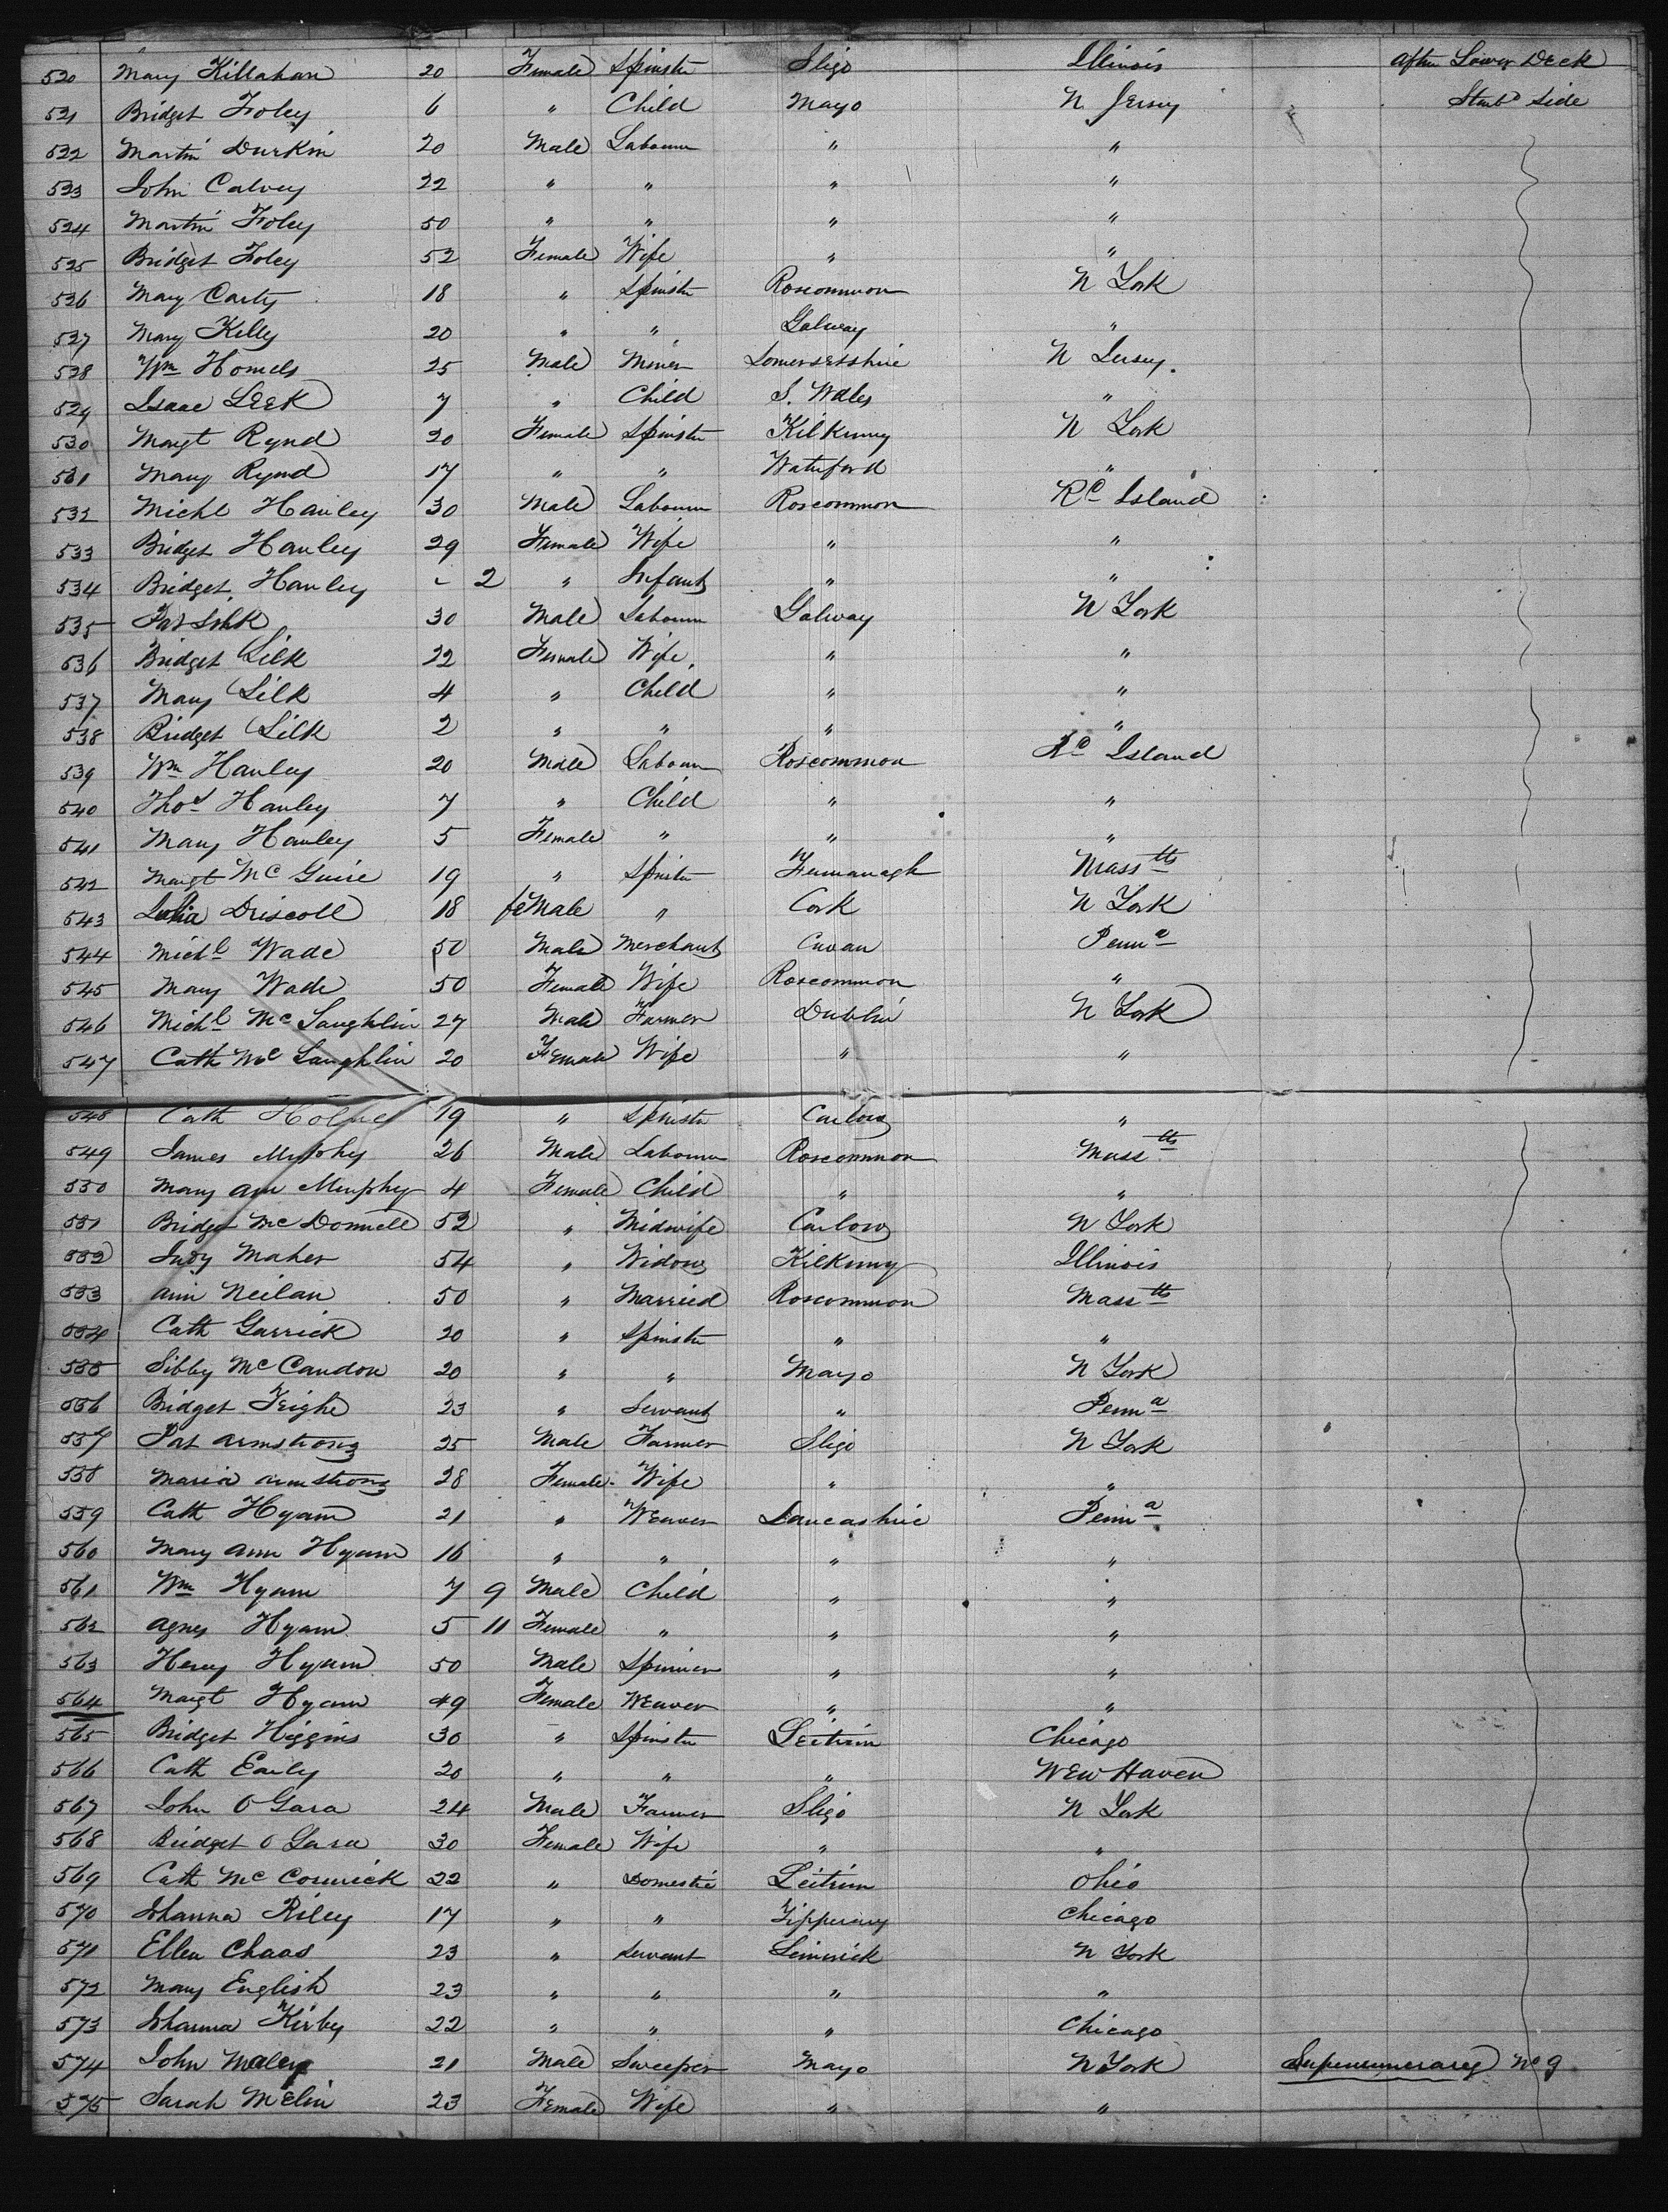 520 Mary Killahan 20 Female Spinster Sligo Illinois After Lower Deck
521 Bridget Foley 6 " Child Mayo N Jersey Starbd Side
522 Martin Durkin 20 Male Labourer " "
523 John Calvey 22 " " " "
524 Martin Foley 50 " " " "
525 Bridget Foley 52 Female Wife " "
526 Mary Carty 18 " Spinster Roscommon N York
527 Mary Kelly 20 " " Galway "
528 Wm Homels 25 Male Miner Somersetshire N Jersey.
529 Isaac Leek 7 " Child S. Wales "
530 Margt Rynd 20 Female Spinster Kilkenny N York
531 Mary Rynd 17 " " Waterford "
532 Michl Hanley 30 Male Labourer Roscommon Rd Island
533 Bridget Hanley 29 Female Wife " "
534 Bridget Hanley - 2 " Infant " "
535 Pat Silk 30 Male Labourer Galway N York
536 Bridget Silk 22 Female Wife " "
537 Mary Silk 4 " Child " "
538 Bridget Silk 2 " " " "
539 Wm Hanley 20 Male Labourer Roscommon Rd Island
540 Thos Hanley 7 " Child " "
541 Mary Hanley 5 Female " " "
542 Margt McGuire 19 " Spinster Fermanagh Masstts
543 Driscoll 18 feMale " Cork N York
544 Michl Wade 50 Male Merchant Cavan Penna
545 Mary Wade 50 Female Wife Roscommon "
546 Michl McLaughlin 27 Male Farmer Dublin N York
547 Cath McLaughlin 20 Female Wife " "
548 Cath 19 " Spinster Carlow "
549 James Murphy 26 Male Labourer Roscommon Masstts
550 Mary Ann Murphy 4 Female Child " "
551 Bridget McDonnell 52 " Midwife Carlow N York
552 Judy Maher 54 " Widow Kilkenny Illinois
553 Ann Neilan 50 " Married Roscommon Masstts
554 Cath Garrick 20 " Spinster " "
555 Sibby McCandon 20 " " Mayo N York
556 Bridget Feighe 23 " Servant " Penna
557 Pat Armstrong 25 Male Farmer Sligo N York
558 Maria Armstrong 28 Female Wife " "
559 Cath Hyam 21 " Weaver Lancashire Penna
560 Mary Ann Hyam 16 " " " "
561 Wm Hyam 7 9 Male Child " "
562 Agnes Hyam 5 11 Female " " "
563 Henry Hyam 50 Male Spinner " "
564 Margt Hyam 49 Female Weaver " "
565 Bridget Higgins 30 " Spinster Leitrim Chicago
566 Cath Early 20 " " " New Haven
567 John O Gara 24 Male Farmer Sligo N York
568 Bridget O Gara 30 Female Wife " "
569 Cath McCormick 22 " Domestic Leitrim Ohio
570 Johanna Riley 17 " " Tipperary Chicago
571 Ellen Chaas 23 " Servant Limerick N York
572 Mary English 23 " " " "
573 Johanna Kirby 22 " " " Chicago
574 John Maley 21 Male Sweeper Mayo N York Supernumerary No 9
575 Sarah McElin 23 Female Wife " "